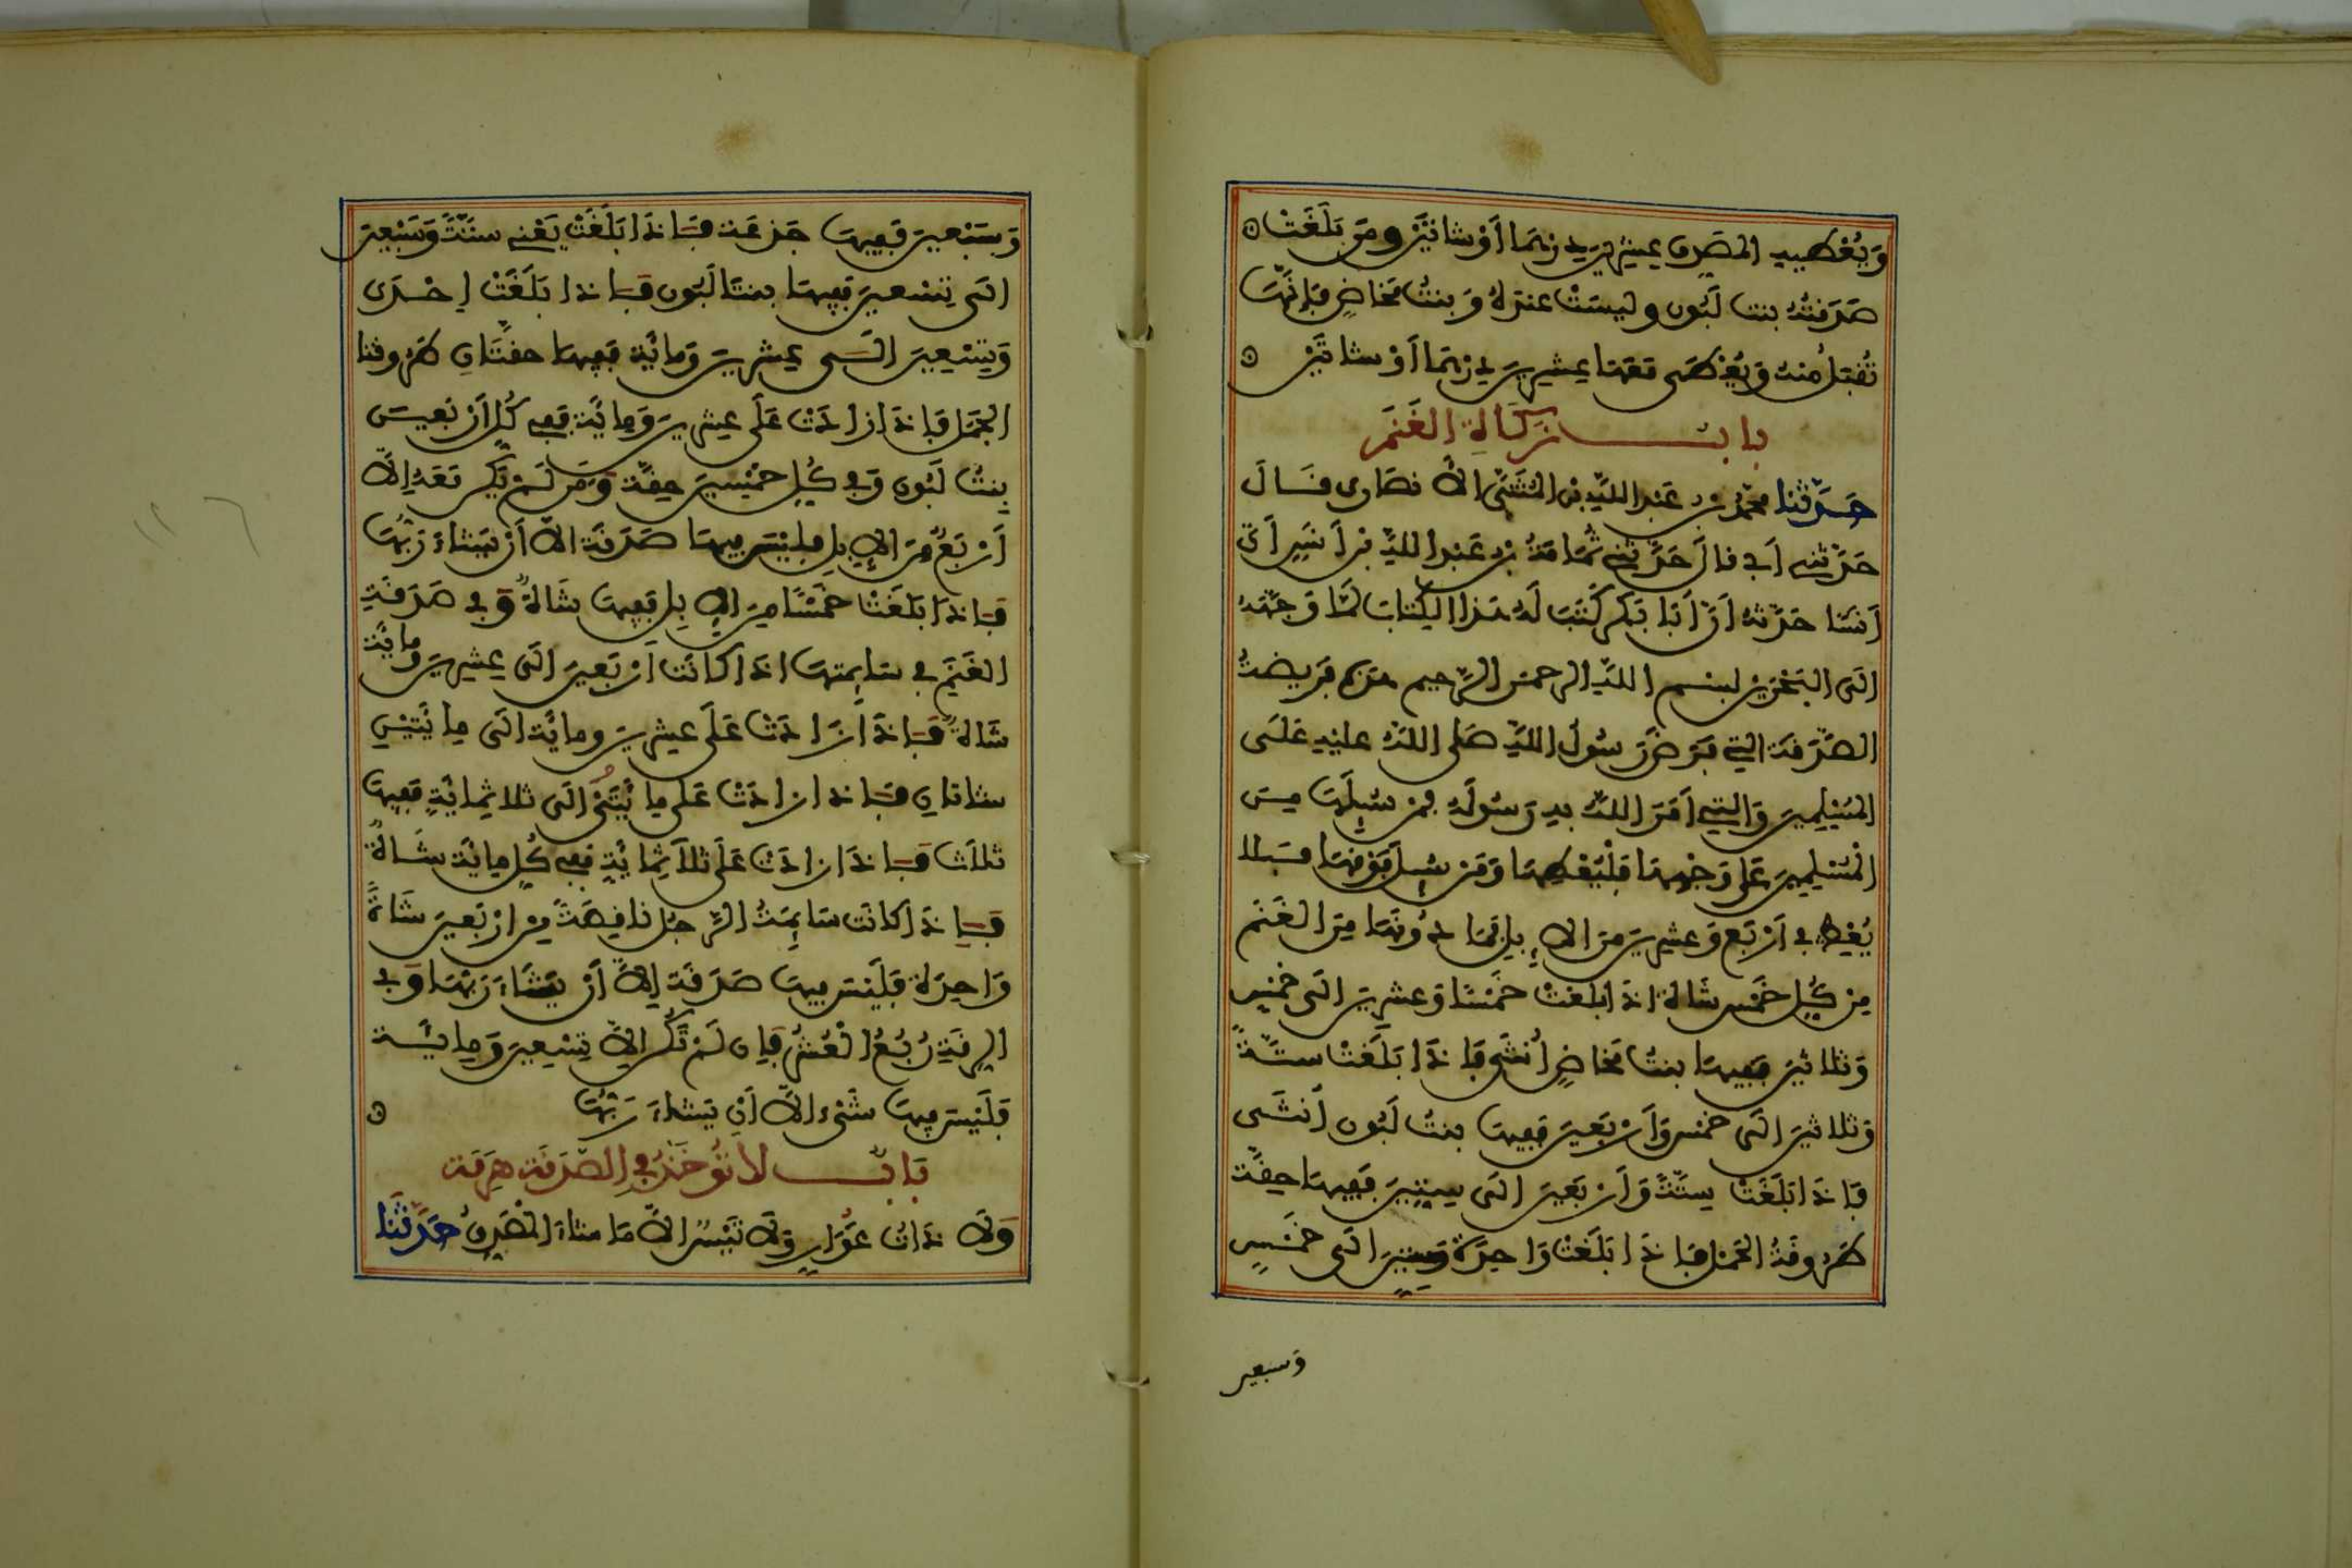 وَيُعْطِيهِ المصَدِّقُ عِشْرِينَ دِرْهَمًا أَوْ شَاتَيْنِ وَمَنْ بَلَغَتْ
صَدَقَتُهُ بنت لَبُون وليسَتْ عندَهُ وَبنتُ مَخَاضٍ فَإِنَّهَا
تُقْبَلُ مِنْهُ وَيُعْطَى مَعَهَا عِشْرِينَ دِرْهَمًا أَوْ شاتَيْنِ
بابُ زكَاةِ الغَنَمِ
حَدَّثَنا محمّدُ بنُ عَبْدِ اللهِ بن المُثَنَّى الأَنصَارى قَالَ
حَدَّثَنِي أَبِي قال حَدَّثَنِي ثُمَامَةُ بنُ عَبْدِ اللهِ بْنِ أَنَسٍ أَنَّ
أَنَسًا حَدَّثَهُ أَنَّ أَبَا بَكْرٍ كَتَبَ لَهُ هَذا الكِتابَ لمَّا وَجَّهَهُ
الَى البَحْرَيْنِ بسم اللهِ الرحمن الرَّحيم هَذِهِ فَرِيضَةُ
الصَّدَقَة الَّتِي فَرَضَ رَسُولُ اللهِ صَلى اللهُ عليْهِ عَلَى
المُسْلِمِينَ وَالَّتِي أَمَرَ اللهُ بِهِ رَسُولَهُ فمَنْ سُئِلَهَا مِنَ
الْمُسْلِمِينَ عَلَى وَجْهِهَا فَلْيُعْطِهَا وَمَنْ سُئِلَ فَوْقَهَا فَلا
يُعْطِ فِي أَرْبَعٍ وَعِشْرِينَ مِنَ الإِبِلِ فَمَا دُونَهَا مِنَ الغَنَم
مِنْ كُلِّ خَمْسٍ شَاةٌ إِذَا بَلَغَتْ خَمْسًا وَعِشْرِينَ الَى خَمْسٍ
وَثلاثينَ فَفِيهَا بنتُ مَخَاضٍ أُنْثَى فَإِذَا بَلَغَتْ سِتَّةً
وَثلاثينَ الَى خمْسٍ وَأَرْبَعِينَ فَفِيهَا بنتُ لَبُونٍ أُنْثَى
فَإِذَا بَلَغَتْ سِتَّةً وَأَرْبَعِينَ الَى سِتِّينَ فَفِيهَا حِقَّة
طَرُوقَةُ الجَمَل فَإِذَا بَلَغَتْ وَاحِدَةً وَسِتِّينَ الَى خَمْسٍ
وسبعين
وَسَبْعِينَ فَفِيهَا جَذَعَة فَإِذَا بَلَغَتْ يَعْنِي سِتَّةً وَسَبْعِينَ
الَى تِسْعِينَ فَفِيهَا بنتَا لَبُون فَإِذا بَلَغَتْ إِحْدَى
وَتِسْعِينَ الَى عِشْرِينَ وَمائة فَفِيهَا حقّتَانِ طَرُوقتا
الجَمَل فَإِذَا زادَتْ عَلَى عِشْرِينَ وَمِائَة فَفِي كُلِّ أَرْبَعِينَ
بِنتُ لَبُون وَفِي كُلِّ خمْسِينَ حِقَّة وَمَنْ لَمْ يَكُنْ مَعَهُ إِلاَّ
أَرْبَعٌ مِنَ الإِبِلِ فلَيْسَ فِيهَا صَدَقَة الاَّ أَنْ يَشَاءَ رَبُّهَا
فَإِذَا بَلَغَتْ خَمْسًا مِنَ الإِبِلِ فَفِيهَا شَاةٌ وَفِي صَدَقَةِ
الغَنَمِ فِي سَائِمتِهَا إِذَا كَانَت أَرْبَعِينَ الَى عِشْرِينَ ومائة
شَاةٌ فَإِذَا زَادَتْ عَلَى عِشْرِينَ ومائة الَى مِائَتَيْنِ
شاتانِ فَإِذا زادَتْ عَلى مِائَتَيْنِ الَى ثلاثِمائةٍ فَفِيهَا
ثلاث فَإِذَا زادَتْ عَلَى ثلاثِمائةٍ فَفِي كُلِّ مِائَة شَاةٌ
فَإِذَا كانَت سَائِمَةُ الرَّجُل ناقِصَةً مِنْ أَرْبَعِينَ شَاةً
وَاحِدَةً فَلَيْسَ فِيهَا صَدَقَة إِلاَّ أَنْ يَشَاءَ رَبُّهَا وَفِي
الرِّقَةِ رُبُعُ الْعُشْرِ فَإِن لَمْ تَكُنْ إِلاَّ تِسْعِينَ وَمِائَة
فَلَيْسَ فِيهَا شَيْء الاَّ أَنْ يَشَاءَ رَبُّهَا
بَابُ لا تُؤْخَذُ فِي الصَّدَقَة هَرِمَة
وَلا ذَاتُ عَوَارٍ وَلا تَيْسٌ الاَّ مَا شاءَ المُصَدِّقُ حَدَّثَنَا